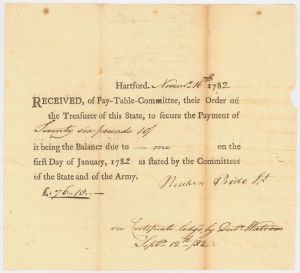 Hartford, Novem. 16th 1782
RECEIVED, of Pay-Table-Committee, their Order on
the Treasurer of this State, to secure the Payment of
Seventy six pounds 10/
it being the Balance due to — me — on the
first Day of January, 1782 as stated by the Committees
of the State and of the Army.
£.76.10.—
Reuben Pride Lt
on Certificate lodg'd by
Sept. 12th 82.